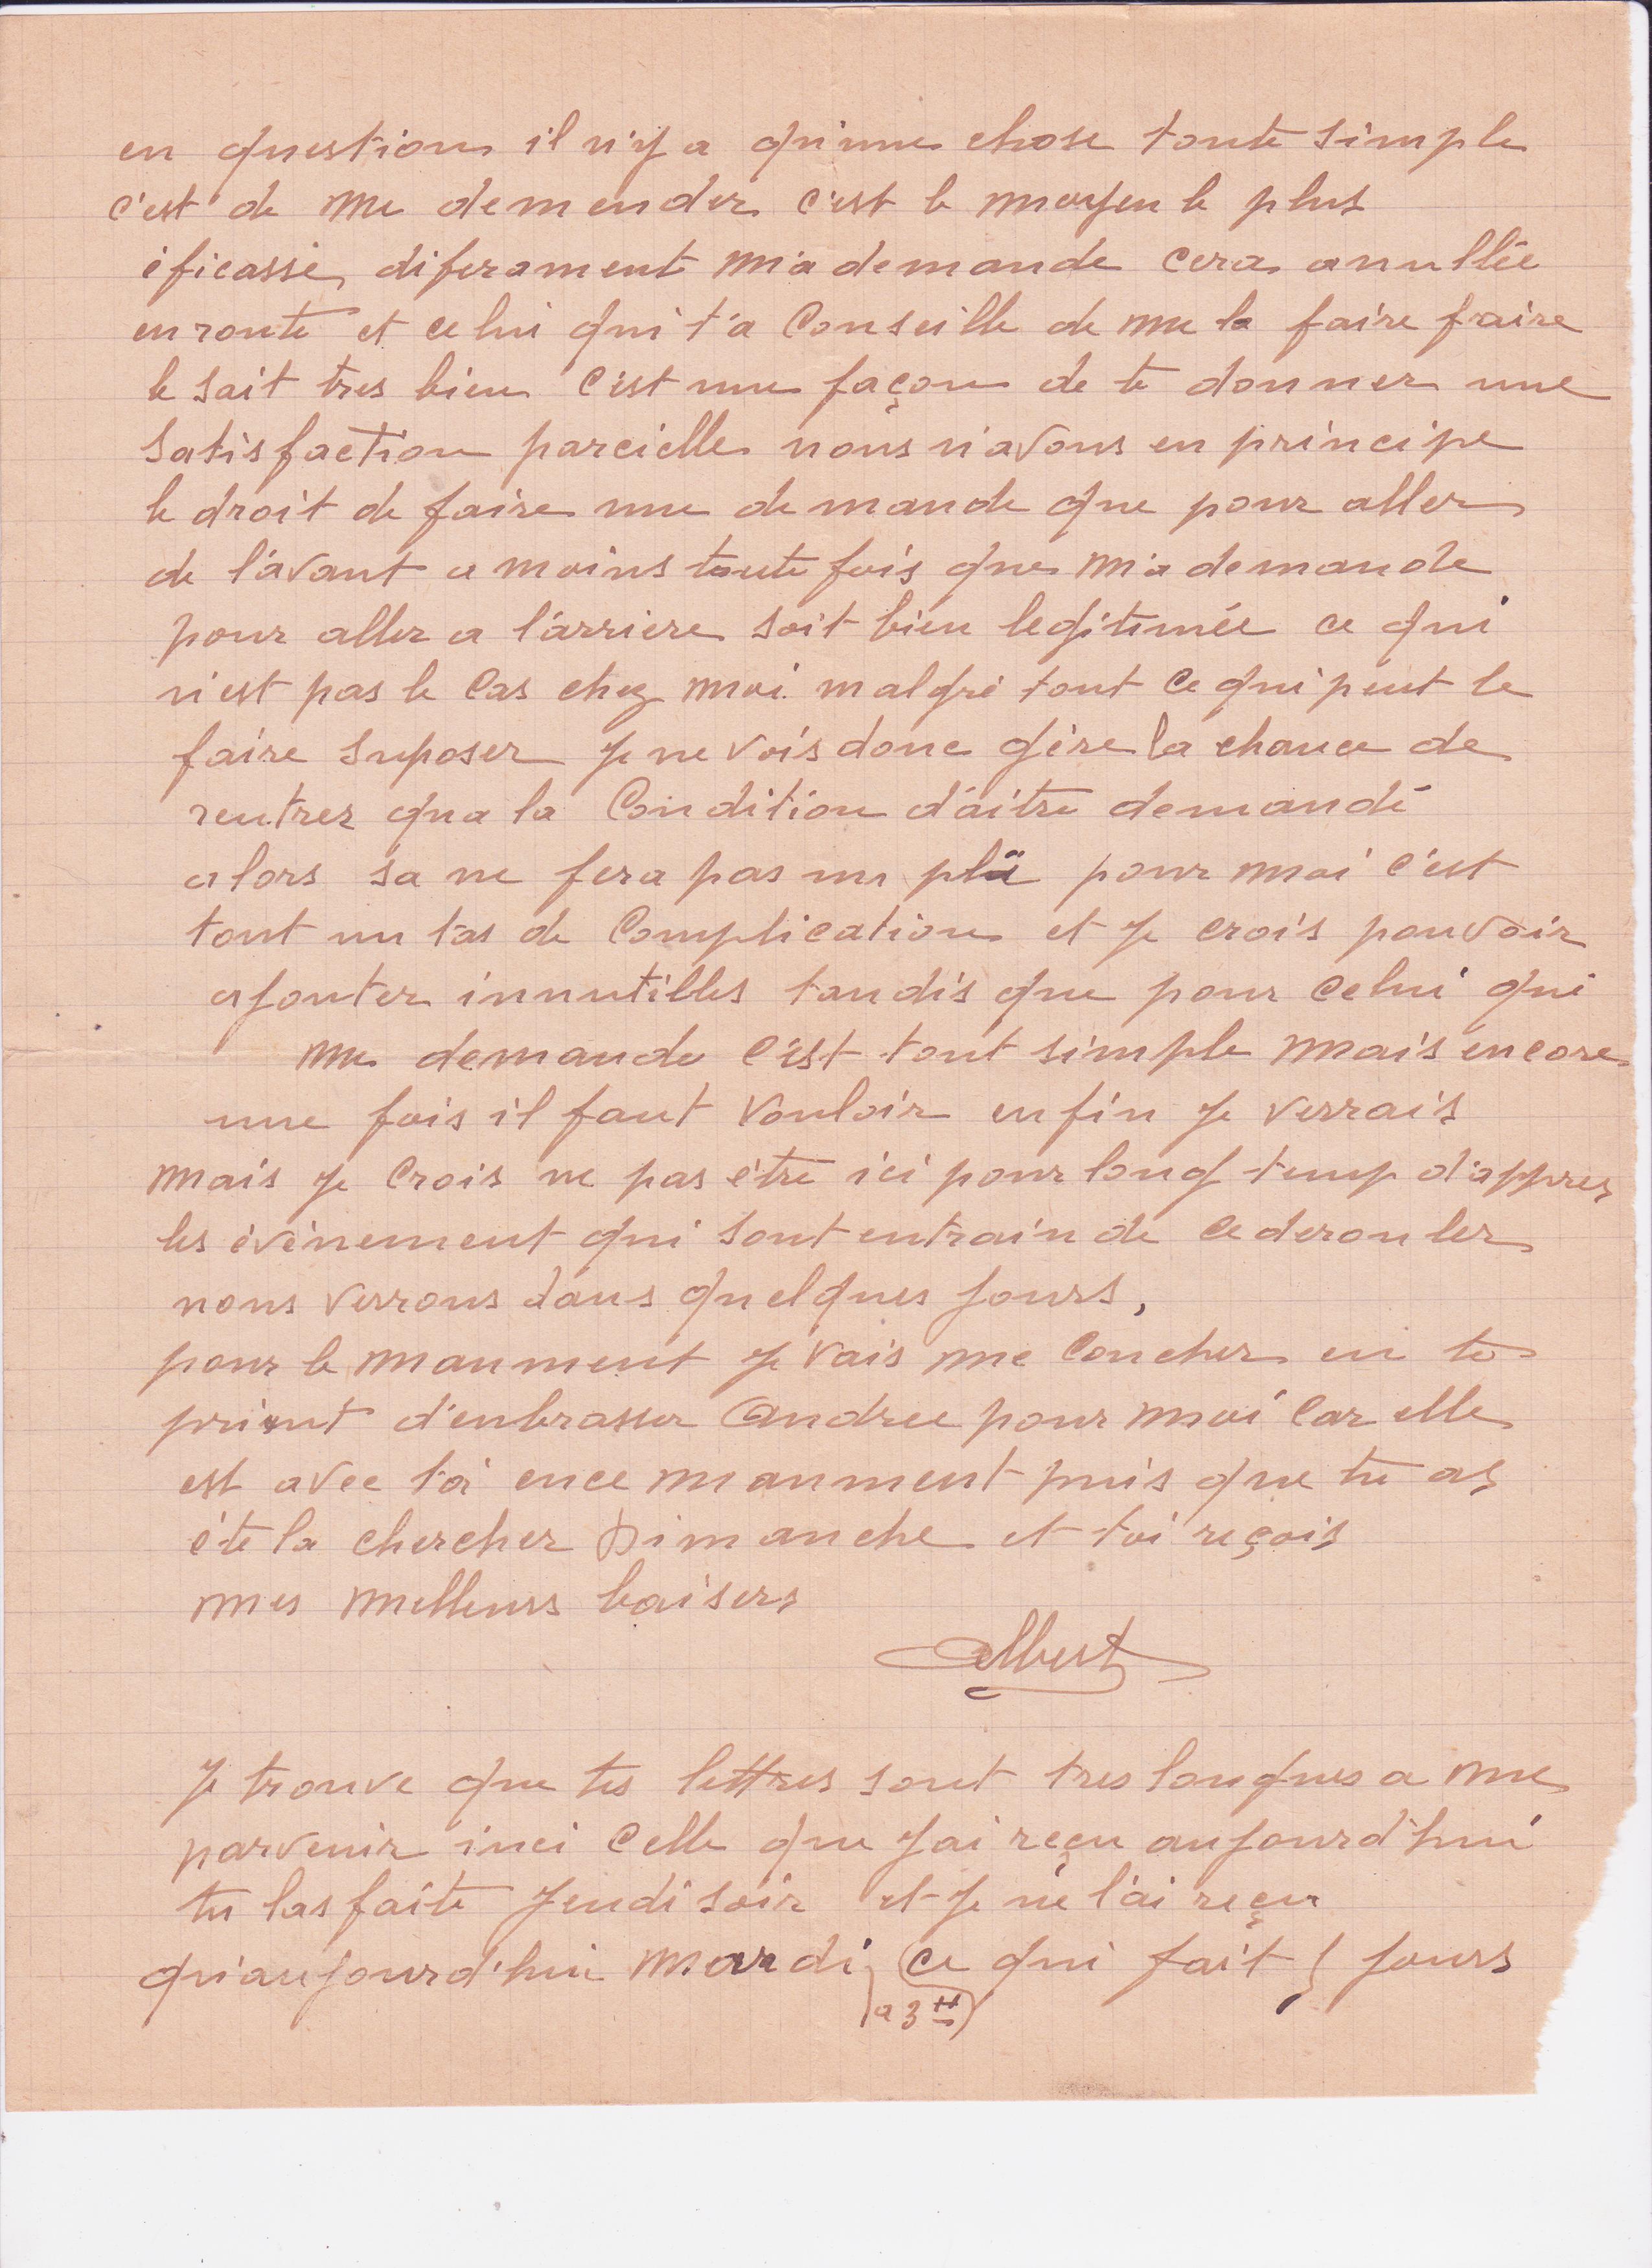 en question il n'y a qu'une chose toute simple
c'est de me demender c'est le moyen le plus
éficasse diferament m'a demande cera anullée
en route et celui qui t'a Conseille de me la faire fraire
le sait tres bien c'est une façon de te donner une
satisfaction parcielle nous n'avons en principe
le droit de faire une demande que pour aller
de l'avant a moins toute fois que m'a demande
pour aller a l'arriere soit bien legitimée ce qui
n'est pas le Cas chez moi malgré tout ce qui peut le
faire suposer Je ne vois donc gère la chance de
rentrez qua la Condition d'aitre demandé
alors sa ne fera pas un pli pour moi c'est
tout un tas de Complication et Je crois pouvoir
ajouter innutilles tandis que pour celui qui
me demande c'est tout simple mais encore
une fois il faut vouloir enfin Je verrais
mais Je Crois ne pas être ici pour long temp d'appres
les évènement qui sont entrain de ce derouler
nous verrons dans quelques Jours,
pour le maument Je vais me Coucher en te
prient d'enbrasser Andree pour moi Car elle
est avec toi en ce maument puis que tu as
été la chercher Dimanche et toi reçois
mes melleurs baisers
Albert
Je trouve que tes lettres sont tres longues a me
parvenir inci celle que J'ai reçu aujourd'hui
tu las faite Jeudi soir et Je ne l'ai reçu
qu'aujourd'hui mardi ce qui fait Jours
(a 3 H)